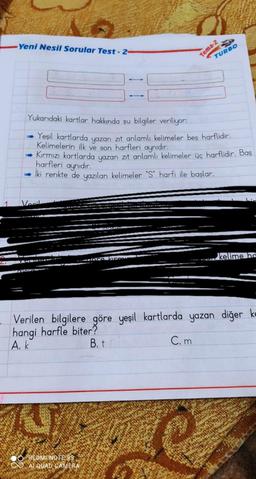 Yeni Nesil Sorular Test - 2
Tema-2
TURBO
Yukarıdaki kartlar hakkında şu bilgiler veriliyor:
Yeşil kartlarda yazan zıt anlamlı kelimeler beş harflidir.
Kelimelerin ilk ve son harfleri aynıdır.
Kırmızı kartlarda yazan zıt anlamlı kelimeler üç harflidir. Baş
harfleri aynıdır.
İki renkte de yazılan kelimeler "S" harfi ile başlar.
1.
kelime
Verilen bilgilere göre yeşil kartlarda yazan diğer
hangi harfle biter?
A. k B. t C. m
REDMI NOTE 8
AI QUAD CAMERA